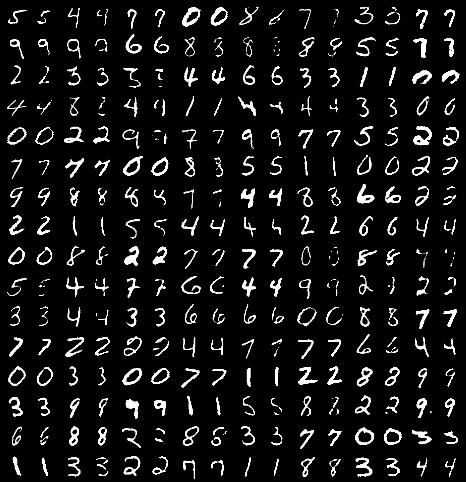 5 5 4 4 7 7 0 0 8 8 7 7 3 3 7 7
9 9 9 9 6 6 8 8 8 8 8 8 5 5 7 7
2 2 3 3 3 3 4 4 6 6 3 3 1 1
4 4 8 8 4 4 1 1 4 4 4 4 3 3 0 0
0 0 2 2 9 9 7 7 9 9 7 7 5 5 2 2
7 7 7 7 0 0 8 8 5 5 1 1 0 0 2 2
9 9 8 8 8 8 7 7 4 4 8 8 6 6 2 2
2 2 1 1 5 5 4 4 4 4 2 2 6 6 4 4
0 0 8 8 2 2 7 7 7 7 0 0 8 8 9 9
5 5 4 4 7 7 6 6 4 4 9 9 2 2 2 2
3 3 4 4 3 3 6 6 6 6 0 0 8 8 7 7
7 7 2 2 2 2 4 4 7 7 7 7 6 6 4 4
0 0 3 3 0 0 7 7 1 1 2 2 8 8 9 9
3 3 9 9 9 9 1 1 5 5 8 8 2 2 9 9
6 6 8 8 2 2 8 8 3 3 7 7 0 0 3 3
1 1 3 3 2 2 7 7 1 1 8 8 3 3 4 4